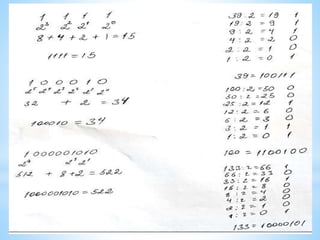 1 1 1 1
2³ 2² 2¹ 2⁰
8+4+2+1=15
1111=15
1 0 0 0 1 0
2⁵ 2⁴ 2³ 2² 2¹ 2⁰
32 + 2 = 34
100010 = 34
1 000001010
2⁹ 2³ 2¹
512 + 8+2=522
1000001010=522
39:2=19 1
19:2=9 1
9:2=4 1
4:2=2 0
2:2=1 0
1:2=0 1
39=100111
100:2=50 0
50:2=25 0
25:2=12 1
12:2=6 0
6:2=3 0
3:2=1 1
1:2=0 1
100=1100100
133:2=66 1
66:2=33 0
33:2=16 1
16:2=8 0
8:2=4 0
4:2=2 0
2:2=1 0
1:2=0 1
133=10000101